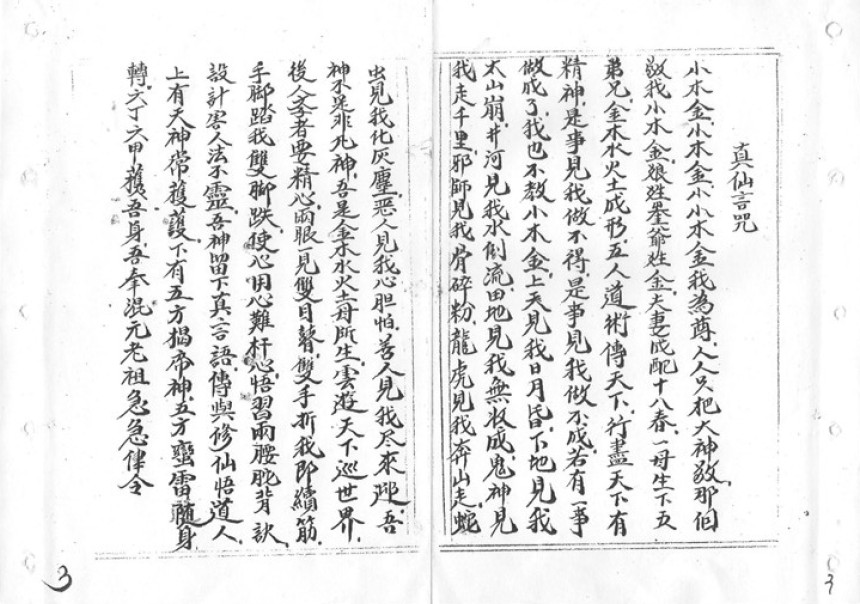 真仙言咒
小木金小木金小小木金我為尊人人只把大神敬那個
敬我小木金娘姓奉爺姓金夫妻成配十八春一母生下五
弟兄金木水火土成形五人道術傳天下行盡天下有
精神是事見我做不得是事見我做不成若有一事
做成了我也不教小木金上天見我日月昏下地見我
太山崩井河見我水倒流田地見我無收成鬼神見
我走千里邪師見我骨碎粉龍虎見我奔山走蛇
虫見我化灰塵惡人見我心胆怕善人見我尽來迎吾
神不是非凡神吾是金木水火土母所生雲遊天下巡世界
後人學者要精心兩眼一見雙目瞽雙手折我即續筋
手腳踏我雙腳跌使心用心難 心悟習兩腰駝背 
設計害人法不靈吾神留下真言語傳與修仙悟道人
上有天神常護護下有五方揭帝神五方蠻雷隨身
轉六丁六甲護吾身吾奉混元老祖急急律令
3
3